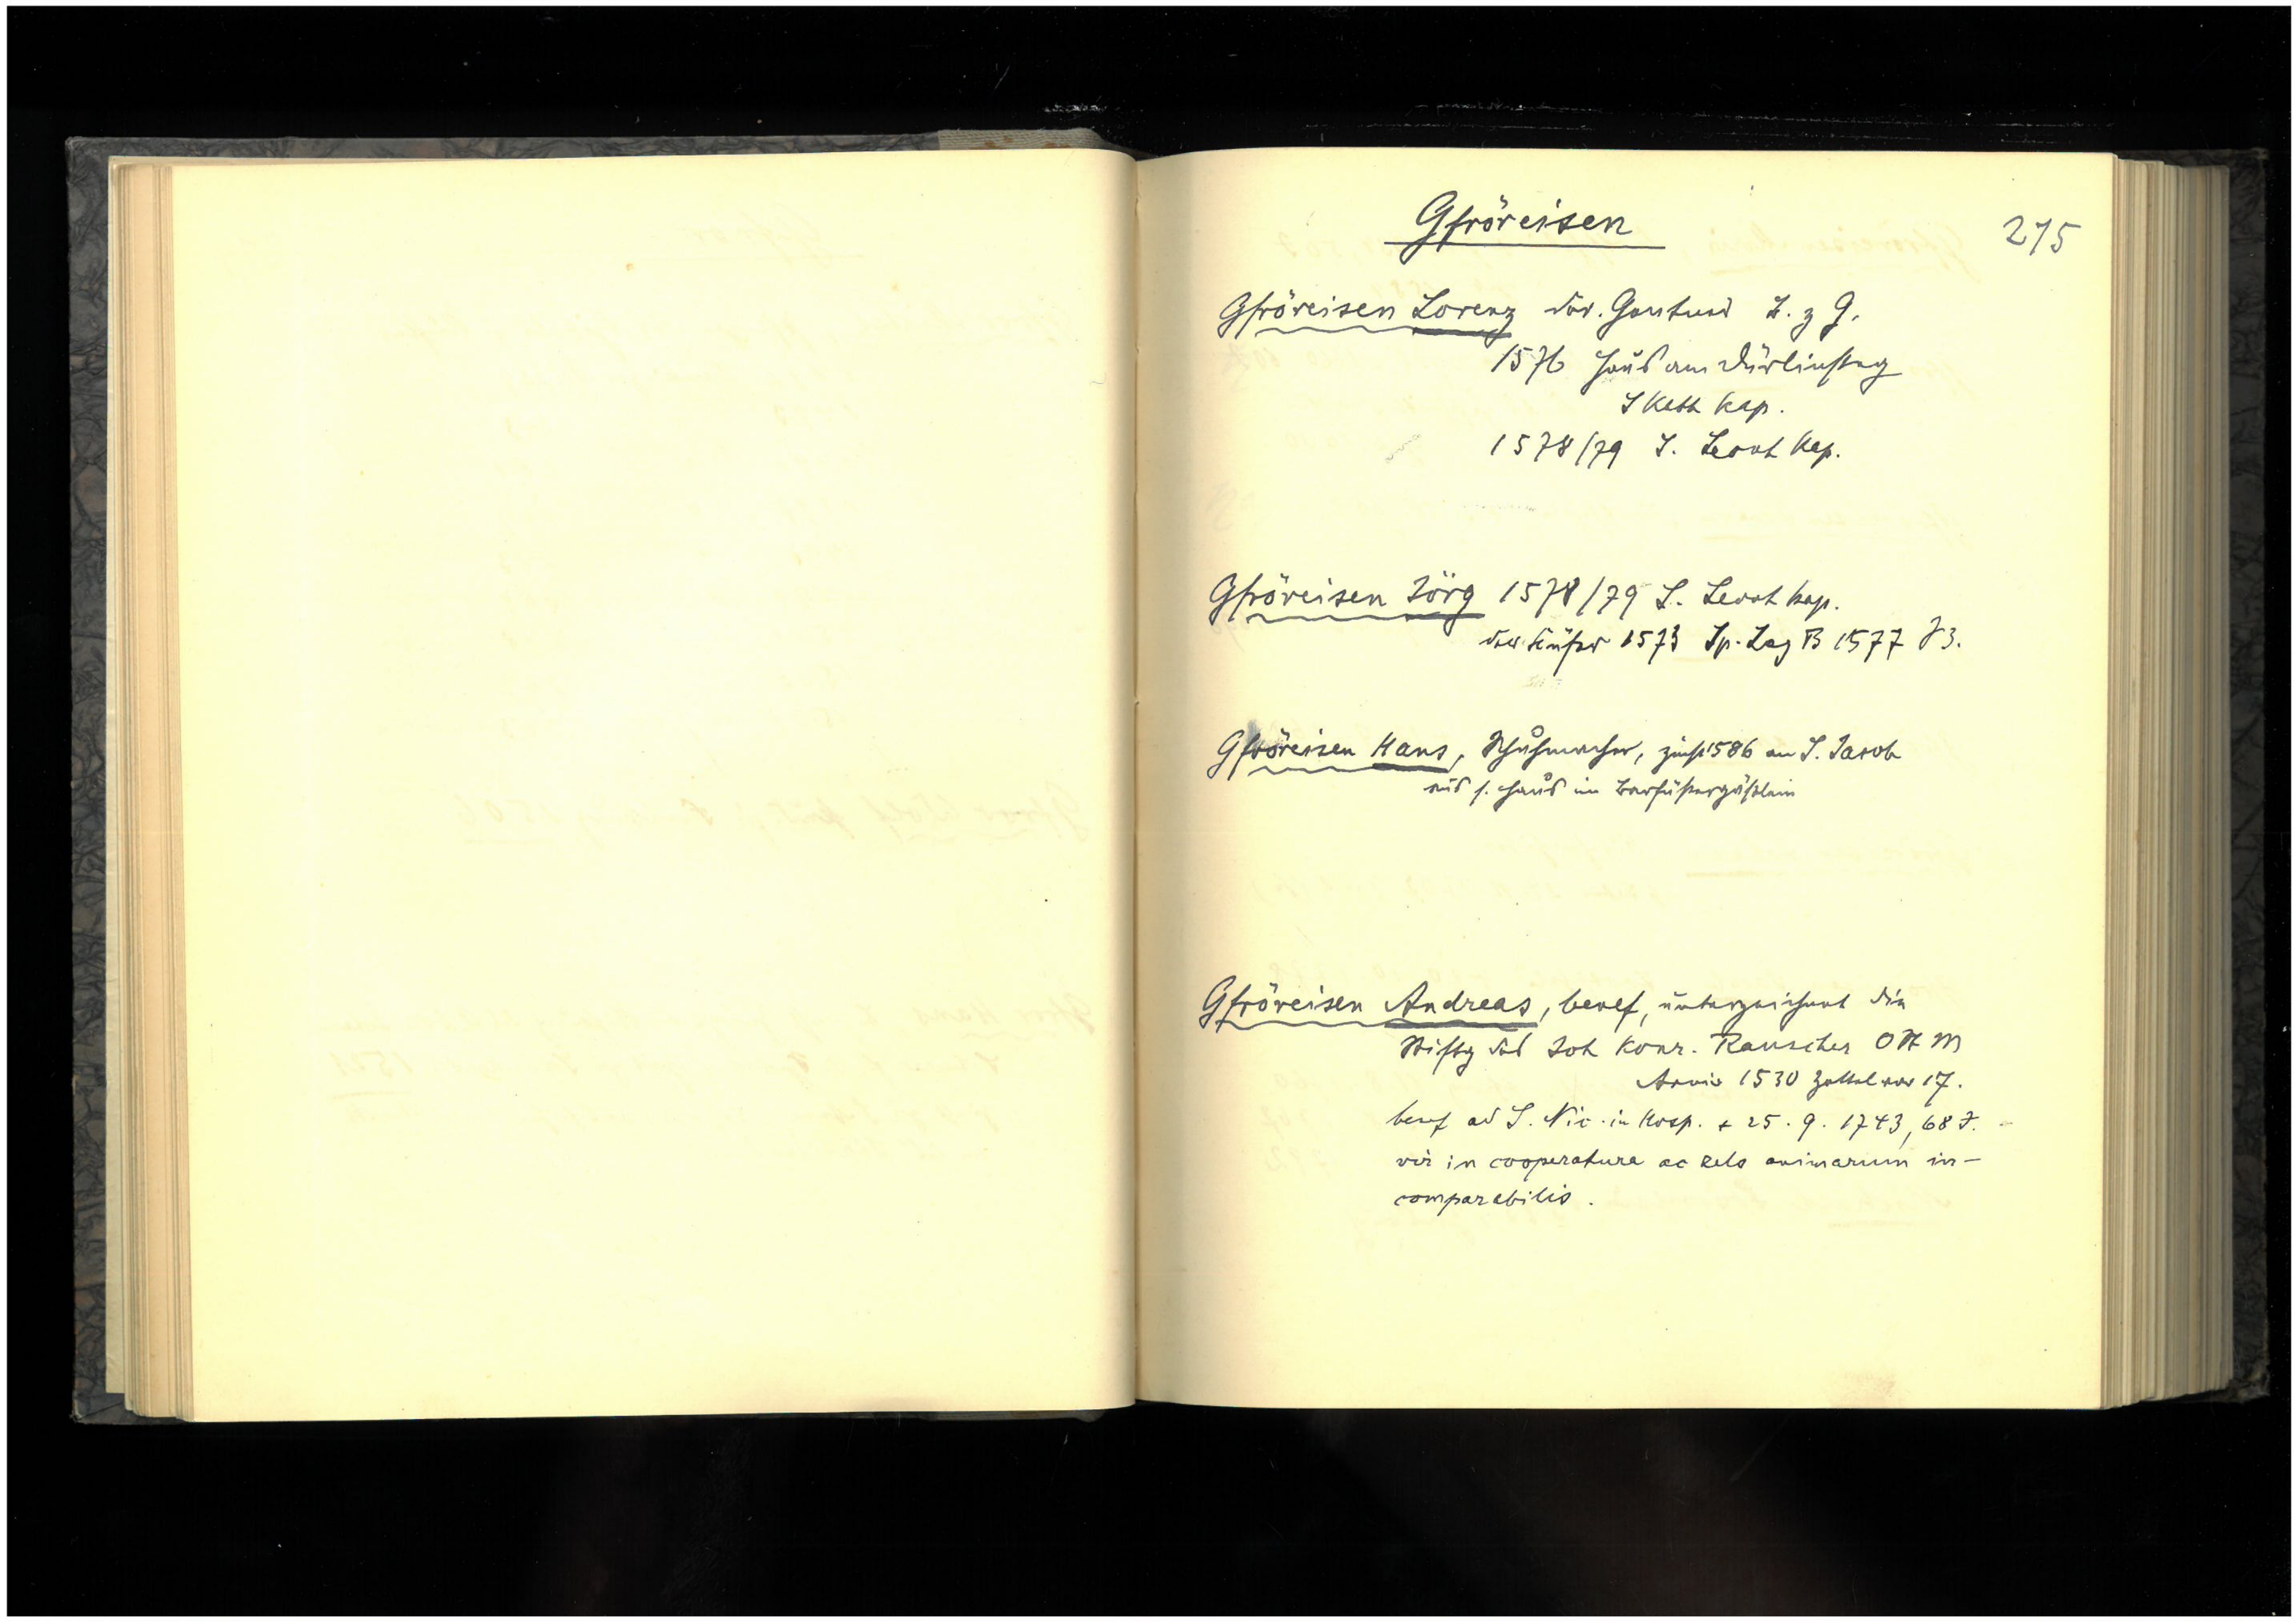 Gfröreisen
275
Gfröreisen Lorenz der. Z. z G.
1576 Haus am Dürlinsteg
S Kath Kap.
1578/79 S. Leonh Kap.
Gfröreisen Jörg 1578/79 S. Leonh Kap.
der Küfer 1573 Sp. Lag B 1577 J 3.
Gfröreisen Hans, Schuhmacher, zinst 1586 an S. Jacob
aus s. Haus im Barfüßergäßlein
Gfröreisen Andreas, benef, unterzeichnet die
Stiftg des Joh Konr. Rauscher
1530 Zettel vor 17.
benef ad S. Nic. in Hosp. + 25. 9. 1743, 68 J.
vir in cooperatura ac zelo animarum in-
comparabilis.